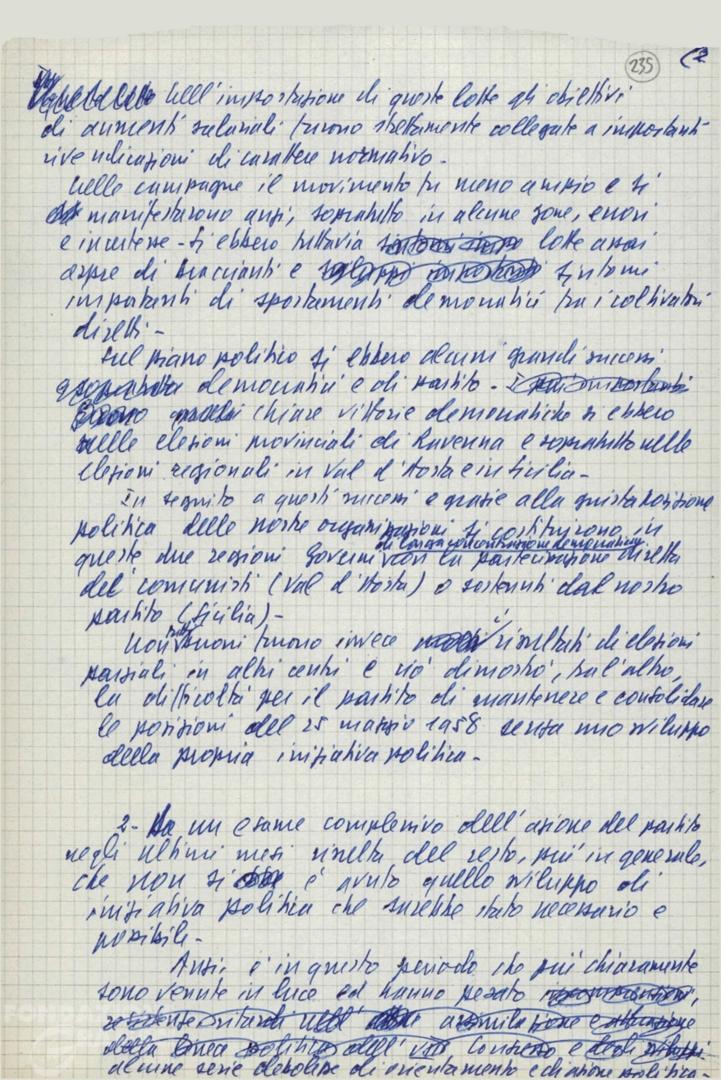 235 (2
Nell'impostazione di queste lotte gli obiettivi
di aumenti salariali furono strettamente collegate a importanti
rivendicazioni di carattere normativo -
Nelle campagne il movimento fu meno ampio e si
manifestarono anzi, sopratutto in alcune zone, errori
e incertezze - Si ebbero tuttavia lotte assai
aspre di braccianti e sintomi
importanti di spostamenti democratici tra i coltivatori
diretti -
Sul piano politico si ebbero alcuni grandi successi
democratici e di partito -
chiare vittorie democratiche si ebbero
nelle elezioni provinciali di Ravenna e sopratutto nelle
elezioni regionali in Val d'Aosta e in Sicilia -
In seguito a questi successi e grazie alla giusta posizione
politica delle nostre organizzazioni si costituirono in
di larga concentrazione democratica
queste due regioni Governi con la partecipazione diretta
dei comunisti (Val d'Aosta) o sostenuti dal nostro
partito (Sicilia) -
Non tutti buoni furono invece i risultati di elezioni
parziali in altri centri e ciò dimostrò, tra l'altro,
la difficoltà per il partito di mantenere e consolidare
le posizioni del 25 maggio 1958 senza uno sviluppo
della propria iniziativa politica -
2 - Da un esame complessivo dell'azione del partito
negli ultimi mesi risulta, del resto, più in generale,
che non si è avuto quello sviluppo di
iniziativa politica che sarebbe stato necessario e
possibile -
Anzi, è in questo periodo che più chiaramente
sono venute in luce ed hanno pesato
resistenze ritardi nell' assimilazione e attuazione
della linea politica dell' VIII Congresso e
alcune serie debolezze di orientamento e di azione politica -
FONDA